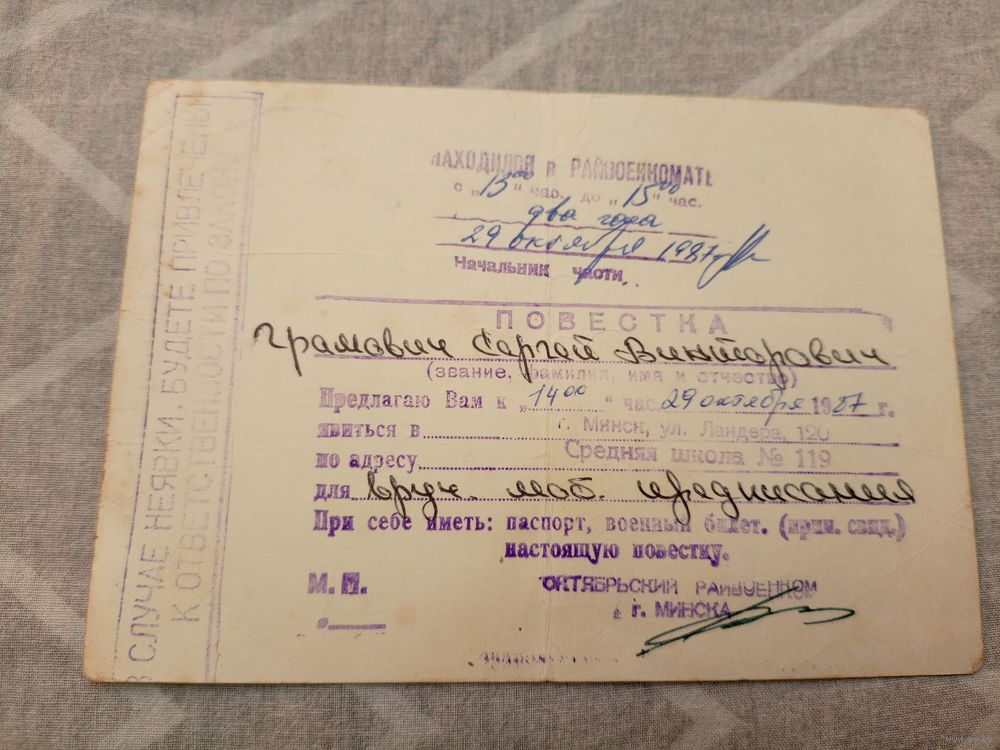 В СЛУЧАЕ НЕЯВКИ, БУДЕТЕ ПРИВЛЕЧЕНЫ
К ОТВЕТСТВЕННОСТИ ПО ЗАКОНУ
НАХОДИЛСЯ в РАЙВОЕНКОМАТЕ
с „13⁰⁰“ час. до „15⁰⁰“ час.
два часа
29 октября 1987г
Начальник части
ПОВЕСТКА
Грамович Сергей Викторович
(звание, фамилия, имя и отчество)
Предлагаю Вам к „14⁰⁰“ час. 29 октября 1987 г.
явиться в г. Минск, ул. Ландера, 120
по адресу Средняя школа № 119
для вруч. моб. предписания
При себе иметь: паспорт, военный билет. (прип. свид.)
настоящую повестку.
М. П.
ОКТЯБРЬСКИЙ РАЙВОЕНКОМ
г. МИНСКА